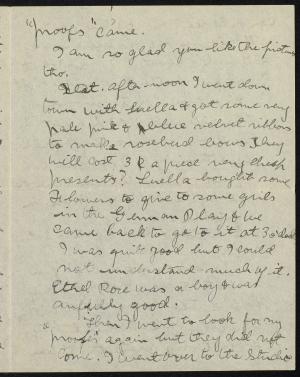 "proofs" came.
I am so glad you like the picture
tho.
Sat. afternoon I went down
town with Luella & got some very
pale pink & blue velvet ribbons
to make rosebud bows. They
will cost 3¢ a piece very cheap
presents? Luella bought some
flowers to give to some girls
in the German Play & we
came back to go to it at 3 o'clock
I was quite good but I could
not understand much of it.
Ethel Rose was a boy & was
awfully good.
Then I went to look for my
"proofs" again but they did not
come. I went over to the Studio